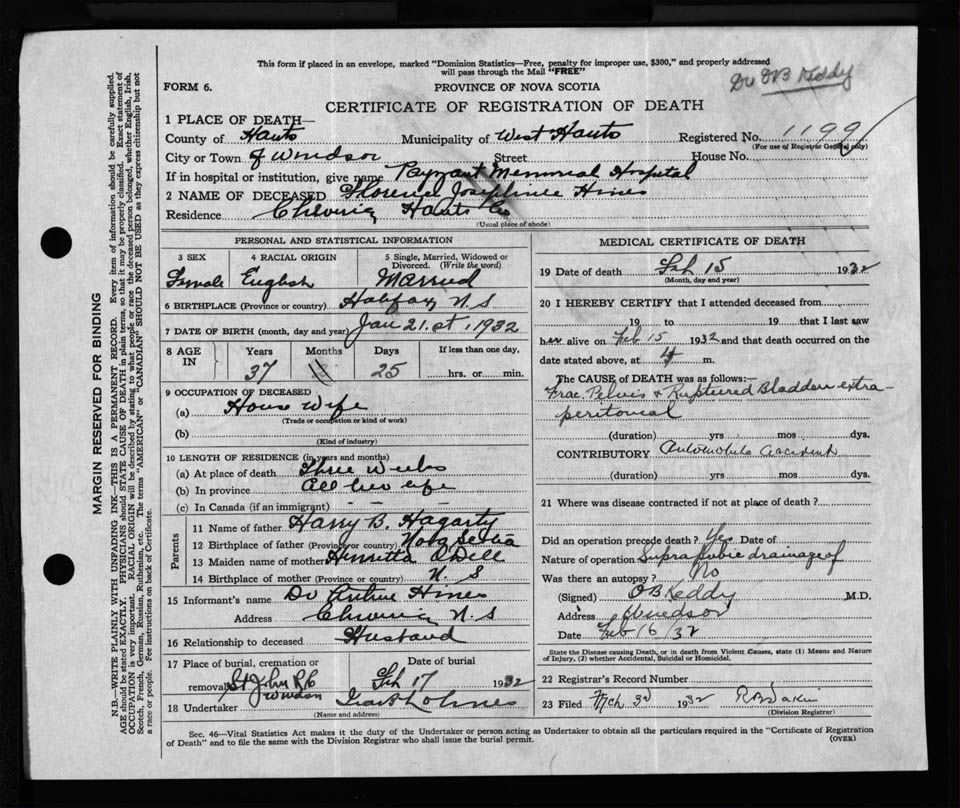 This form if placed in an envelope, marked "Dominion Statistics—Free, penalty for improper use, $300," and properly addressed
will pass through the Mail "FREE"
Dr OB Keddy
FORM 6.
PROVINCE OF NOVA SCOTIA
CERTIFICATE OF REGISTRATION OF DEATH
1 PLACE OF DEATH—
County of Hants Municipality of West Hants Registered No. 1199
(For use of Registrar General only)
City or Town of Windsor Street House No.
If in hospital or institution, give name Payzant Memorial Hospital
2 NAME OF DECEASED Florence Josephinee Hines
Residence Hants Co
(Usual place of abode)
PERSONAL AND STATISTICAL INFORMATION
3 SEX 4 RACIAL ORIGIN 5 Single, Married, Widowed or
Divorced. (Write the word)
Female English Married
6 BIRTHPLACE (Province or country) Halifax N.S
7 DATE OF BIRTH (month, day and year) Jan 21st, 1932
8 AGE IN Years Months Days If less than one day,
37 25 hrs. or min.
9 OCCUPATION OF DECEASED
(a) House Wife
(Trade or occupation or kind of work)
(b)
(Kind of industry)
10 LENGTH OF RESIDENCE (in years and months)
(a) At place of death Three Weeks
(b) In province All her life
(c) In Canada (if an immigrant) - - -
Parents
11 Name of father Harry B. Hagarty
12 Birthplace of father (Province or country) Nova Scotia
13 Maiden name of mother Henretta O'Dell
14 Birthplace of mother (Province or country) N. S
15 Informant's name Dr Arthur Hines
Address N.S
16 Relationship to deceased Husband
17 Place of burial, cremation or Date of burial
removal St John RC Windsor Feb 17 1932
18 Undertaker
(Name and address)
MEDICAL CERTIFICATE OF DEATH
19 Date of death Feb 15 1932
(Month, day and year)
20 I HEREBY CERTIFY that I attended deceased from
19 to 19 that I last saw
her alive on Feb 15 1932 and that death occurred on the
date stated above, at 4 m.
The CAUSE of DEATH was as follows:—
Frac. Pelvis & Ruptured Bladder extra-
peritoneal
(duration) yrs mos dys.
CONTRIBUTORY Automobile accident
(duration) yrs. mos. dys.
21 Where was disease contracted if not at place of death?
Did an operation precede death? Yes Date of
Nature of operation Supra pubic drainage of
Was there an autopsy? No
(Signed) OB Keddy M.D.
Address Windsor
Date Feb 16/32
State the Disease causing Death, or in death from Violent Causes, state (1) Means and Nature
of Injury, (2) whether Accidental, Suicidal or Homicidal.
22 Registrar's Record Number
23 Filed Mch 3rd 1932
(Division Registrar)
Sec. 46—Vital Statistics Act makes it the duty of the Undertaker or person acting as Undertaker to obtain all the particulars required in the "Certificate of Registration
of Death" and to file the same with the Division Registrar who shall issue the burial permit. (OVER)
MARGIN RESERVED FOR BINDING
N.B.—WRITE PLAINLY WITH UNFADING INK—THIS IS A PERMANENT RECORD. Every item of information should be carefully supplied.
AGE should be stated EXACTLY. PHYSICIANS should STATE CAUSE OF DEATH in plain terms, so that it may be properly classified. Exact statement of
OCCUPATION is very important. RACIAL ORIGIN will be described by stating to what people or race the deceased person belonged, whether English, Irish,
Scotch, French, German, Russian, Ruthenian, etc. The terms "AMERICAN" or "CANADIAN" SHOULD NOT BE USED as they express citizenship but not
a race or people. Fee instructions on back of Certificate.